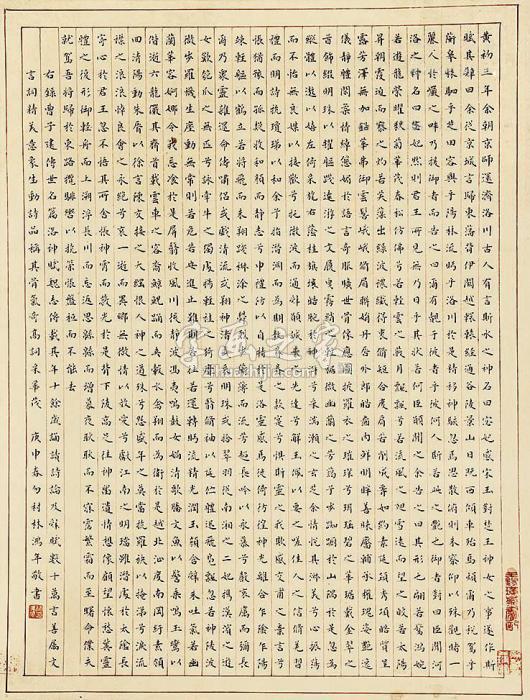 黄初三年余朝京師還濟洛川古人有言斯水之神名曰宓妃感宋玉對楚王神女之事遂作斯
賦其辭曰余從京城言歸東藩背伊闕越轘轅經通谷陵景山日既西傾車殆馬煩爾乃税駕乎
蘅皋秣駟乎芝田容與乎陽林流眄乎洛川於是精移神駭忽焉思散俯則未察仰以殊觀睹一
麗人於巖之畔乃援御者而告之曰爾有覿於彼者乎彼何人斯若此之艷也御者對曰臣聞河
洛之神名曰宓妃然則君王所見無乃是乎其狀若何臣願聞之余告之曰其形也翩若驚鴻婉
若遊龍榮曜秋菊華茂春松仿佛兮若輕雲之蔽月飄飄兮若流風之迴雪遠而望之皎若太陽
昇朝霞迫而察之灼若芙蕖出綠波穠纖得衷修短合度肩若削成腰如約素延頸秀項皓質呈
露芳澤無加鉛華弗御雲髻峨峨修眉聯娟丹唇外朗皓齒内鮮明眸善睞靨輔承權瓌姿艷逸
儀靜體閑柔情綽態媚於語言奇服曠世骨像應圖披羅衣之璀璨兮珥瑶碧之華琚戴金翠之
首飾綴明珠以耀軀踐遠遊之文履曳霧綃之輕裾微幽蘭之芳藹兮步踟躕於山隅於是忽焉
縱體以遨以嬉左倚采旄右蔭桂旗攘皓腕於神滸兮采湍瀨之玄芝余情悦其淑美兮心振蕩
而不怡無良媒以接歡兮托微波而通辭願誠素之先達兮解玉佩以要之嗟佳人之信修羌習
禮而明詩抗瓊珶以和予兮指潛淵而為期執眷眷之款實兮懼斯靈之我欺感交甫之棄言兮
悵猶豫而狐疑收和顔而靜志兮申禮防以自持於是洛靈感焉徙倚彷徨神光離合乍陰乍陽
竦輕軀以鶴立若將飛而未翔踐椒塗之郁烈步蘅薄而流芳超長吟以永慕兮聲哀厲而彌長
爾乃衆靈雜遝命儔嘯侣或戲清流或翔神渚或采明珠或拾翠羽從南湘之二妃攜漢濱之遊
女歎匏瓜之無匹兮詠牽牛之獨處揚輕袿之猗靡兮翳修袖以延佇體迅飛鳧飄忽若神陵波
微步羅襪生塵動無常則若危若安進止難期若往若還轉眄流精光潤玉顔含辭未吐氣若幽
蘭華容婀娜令我忘餐於是屏翳收風川后靜波馮夷鳴鼓女媧清歌騰文魚以警乘鳴玉鸞以
偕逝六龍儼其齊首載雲車之容裔鯨鯢踴而夾轂水禽翔而為衛於是越北沚過南岡紆素領
回清陽動朱唇以徐言陳交接之大綱恨人神之道殊兮怨盛年之莫當抗羅袂以掩涕兮淚流
襟之浪浪悼良會之永絶兮哀一逝而異鄉無微情以效愛兮獻江南之明璫雖潛處於太陰長
寄心於君王忽不悟其所舍悵神宵而蔽光於是背下陵高足往神留遺情想像顧望懷愁冀靈
體之復形御輕舟而上溯浮長川而忘返思綿綿而增慕夜耿耿而不寐霑繁霜而至曙命僕夫
就駕吾將歸於東路攬騑轡以抗策悵盤桓而不能去
右録曹子建傳世名篇洛神賦魏志傳載其年十餘歲誦讀詩論及辭賦數十萬言善屬文
言詞精美意象生動詩品稱其骨氣奇高詞采華茂 庚申春月林鴻年敬書